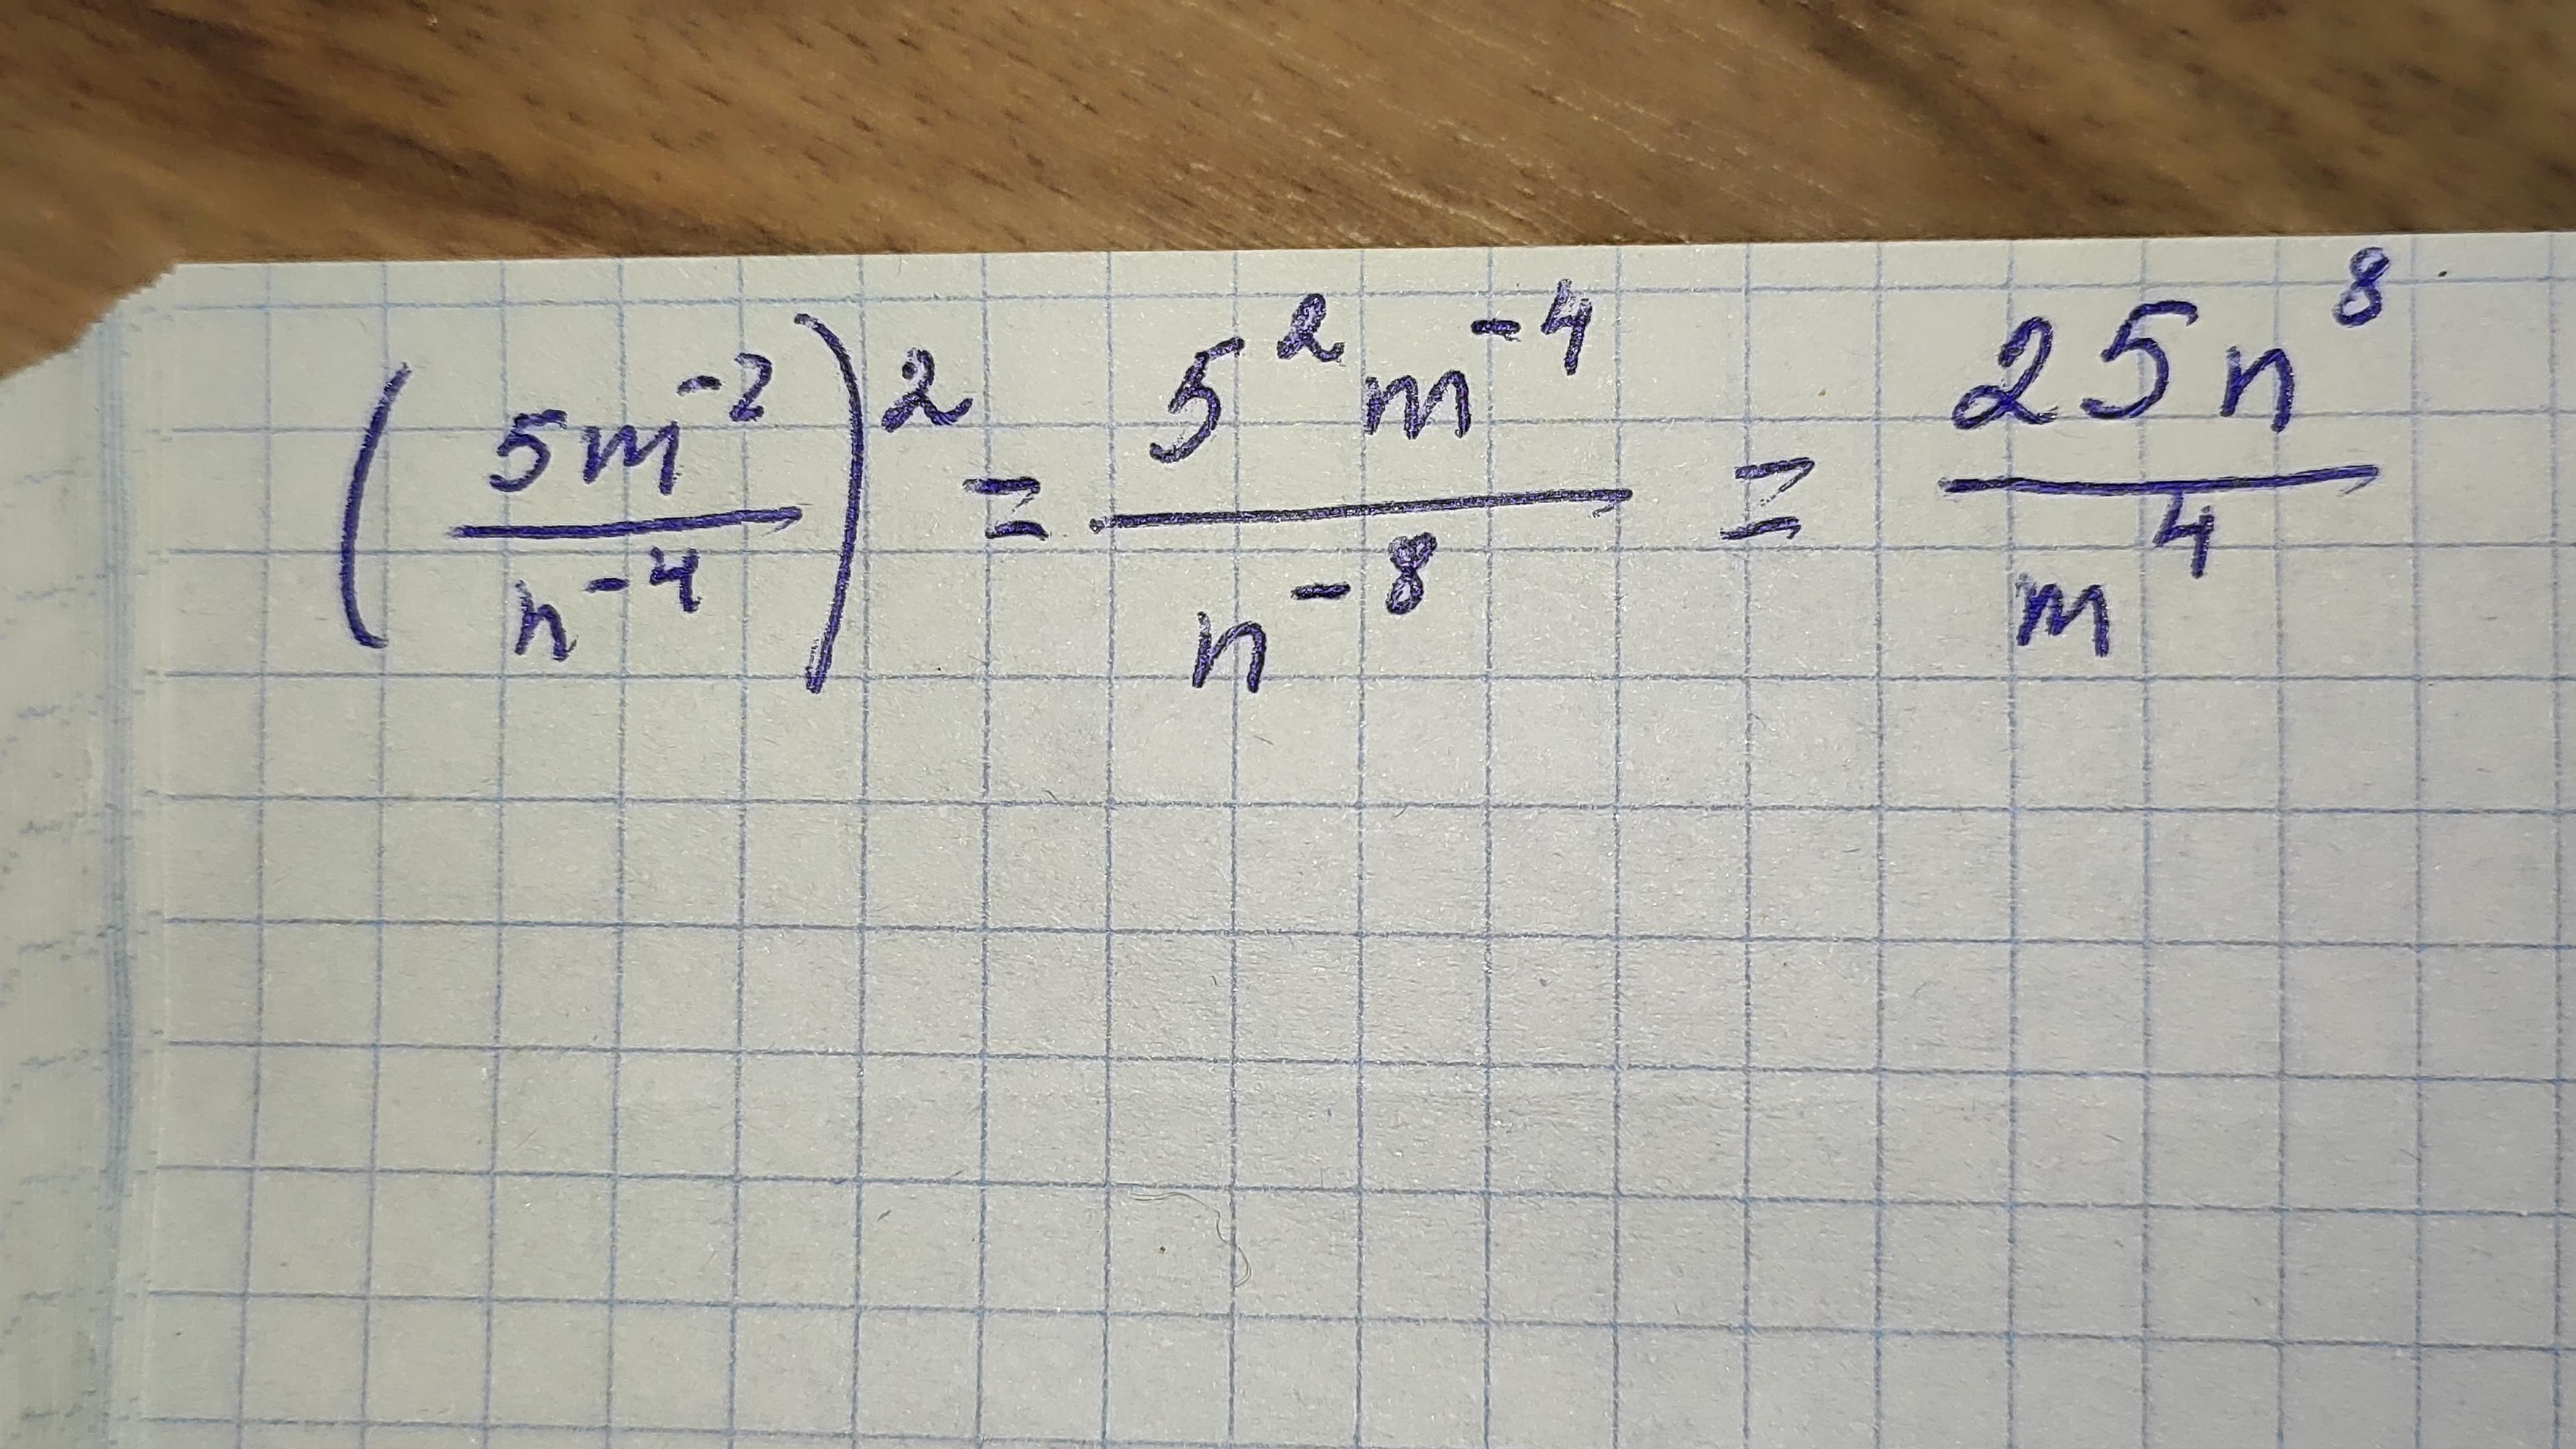 (5m⁻² / n⁻⁴)² = 5²m⁻⁴ / n⁻⁸ = 25n⁸ / m⁴